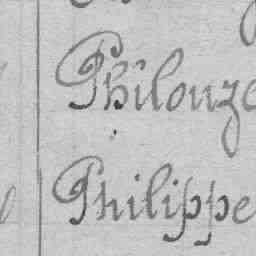 Philouze
Philippe